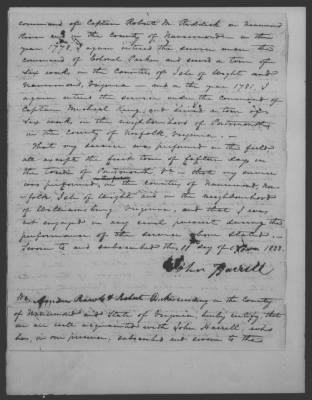 command of Captain Robert M. Riddick on Nansemond
River and in the County of Nansemond — in the
year 1778, I again entered the service under the
command of Colonel Parker and served a tour of
six weeks in the Counties of Isle of Wight and
Nansemond, Virginia — and in the year 1781, I
again entered the service under the Command of
Captain Michael King, and served a tour of
six weeks in the neighbourhood of Portsmouth
in the County of Norfolk Virginia. —
That my service was performed in the field
all except the first tour of fifteen days in
the town of Portsmouth &c — that my service
was performed in the counties of Nansemond, Nor-
folk, Isle of Wight and in the neighbourhood
of Williamsburg Virginia, and that I was
not engaged in any civil pursuit during the
performance of the service above stated. —
Sworn to and subscribed this 11th day of 1833.
John Harrell
We Riddick & Robert residing in the County
of Nansemond and State of Virginia, hereby certify, that
we are well acquainted with John Harrell, who
has, in our presence, subscribed and sworn to the